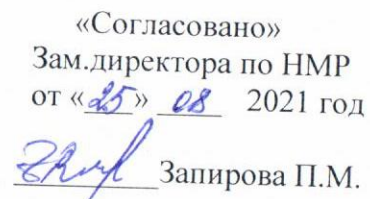 «Согласовано»
Зам.директора по НМР
от «25» 08 2021 год
Запирова П.М.